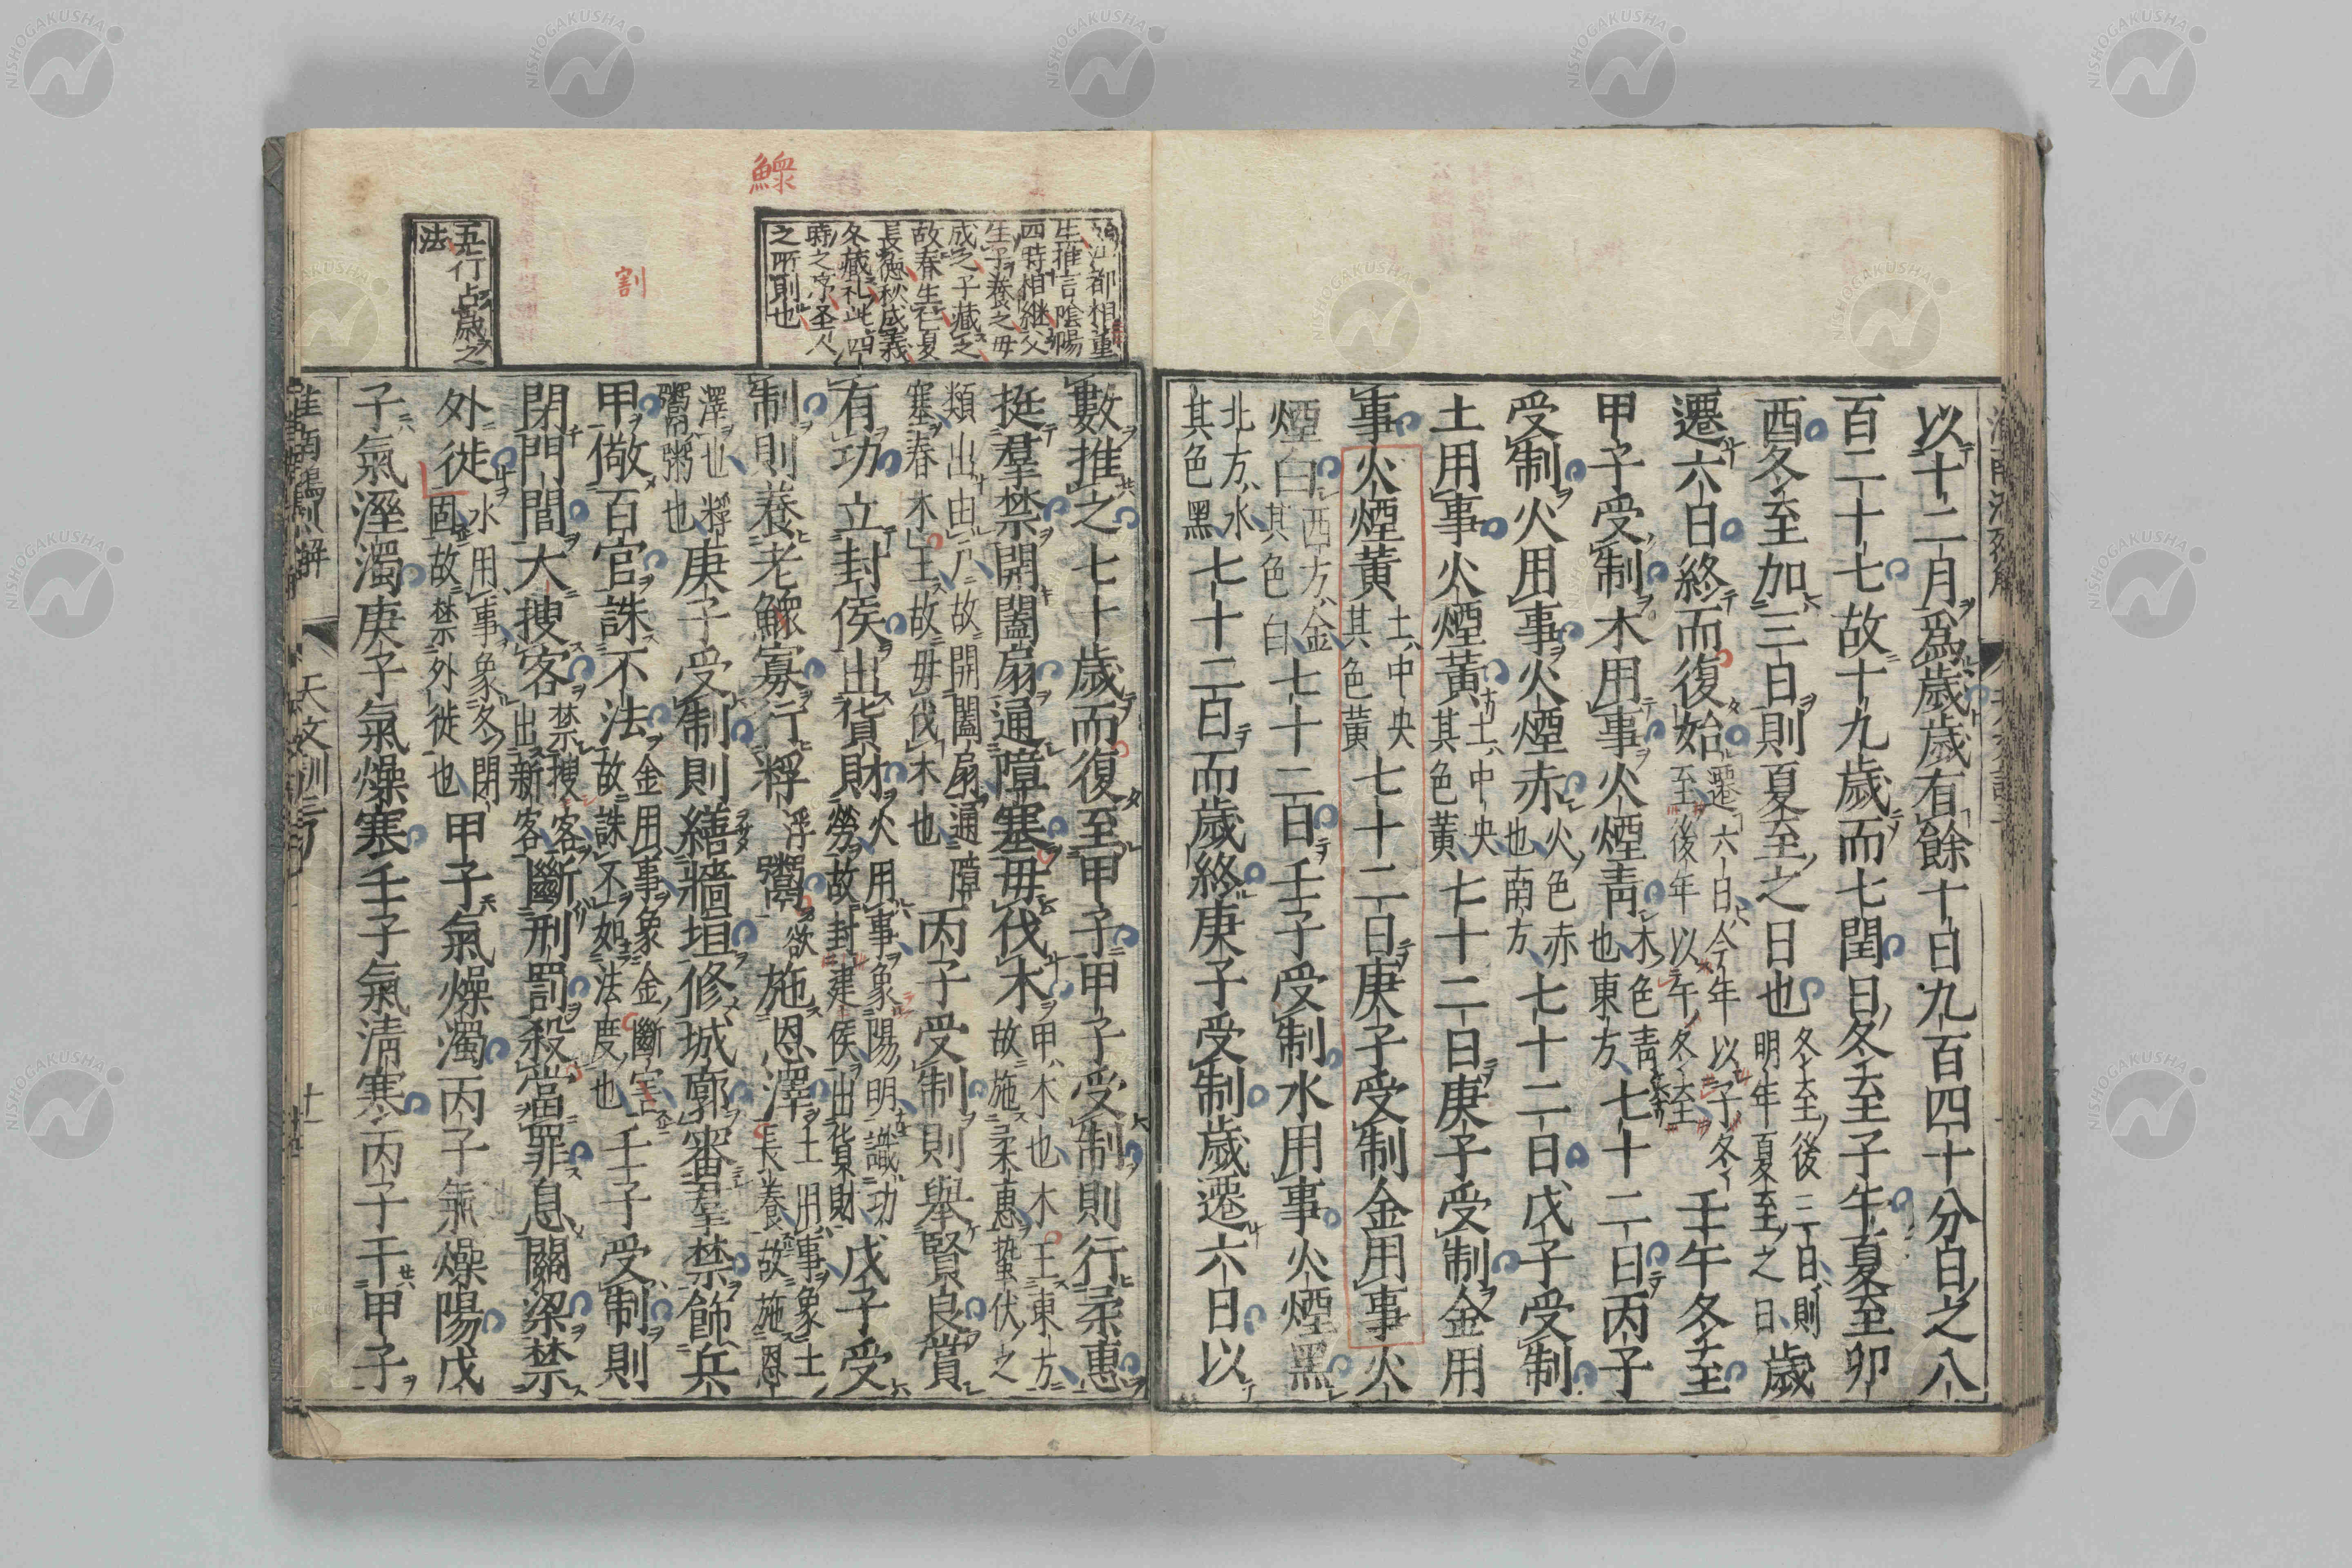 以十二月爲歲歲有餘十日九百四十分日之八
百二十七故十九歲而七閏日冬至子午夏至卯
酉冬至加三日則夏至之日也
冬至後三日則
明年夏至之日
歲
遷六日終而復始
遷六日今年以子冬
至後年以午冬至
壬午冬至
甲子受制木用事火煙青
木色青
也東方
七十二日丙子
受制火用事火煙赤
火色赤
也南方
七十二日戊子受制
土用事火煙黃
土中央
其色黃
七十二日庚子受制金用
事火煙黃
土中央
其色黃
七十二日庚子受制金用事火
煙白
西方金
其色白
七十二日壬子受制水用事火煙黑
北方水
其色黑
七十二日而歲終庚子受制歲遷六日以
江都相董
生推言陰陽
四時相繼父
生之子養之母
成之子藏之
故春生仁夏
長德秋成義
冬藏礼此四
時之序圣人
之所則也
鰥
割
五行占歲之
法
數推之七十歲而復至甲子甲子受制則行柔惠
挺羣禁開闔扇通障塞毋伐木
甲木也木王東方
故施柔惠蟄伏之
類出由戸故開闔扇通障
塞春木王故毋伐木也
丙子受制則舉賢良賞
有功立封侯出貨財
火用事象陽明識功
勞故封建侯出貨財
戊子受
制則養老鰥寡行稃鬻施恩澤
土用事象土
長養故施恩
澤也稃
鬻粥也
庚子受制則繕牆垣修城郭審羣禁飾兵
甲儆百官誅不法
金用事象金斷宰
故誅不如法度也
壬子受制則
閉門閭大搜客
禁搜客
出新客
斷刑罰殺當罪息關梁禁
外徙
水用事象冬閉
固故禁外徙也
甲子氣燥濁丙子氣燥陽戊
子氣溼濁庚子氣燥寒壬子氣清寒丙子干甲子
天文訓三
十一